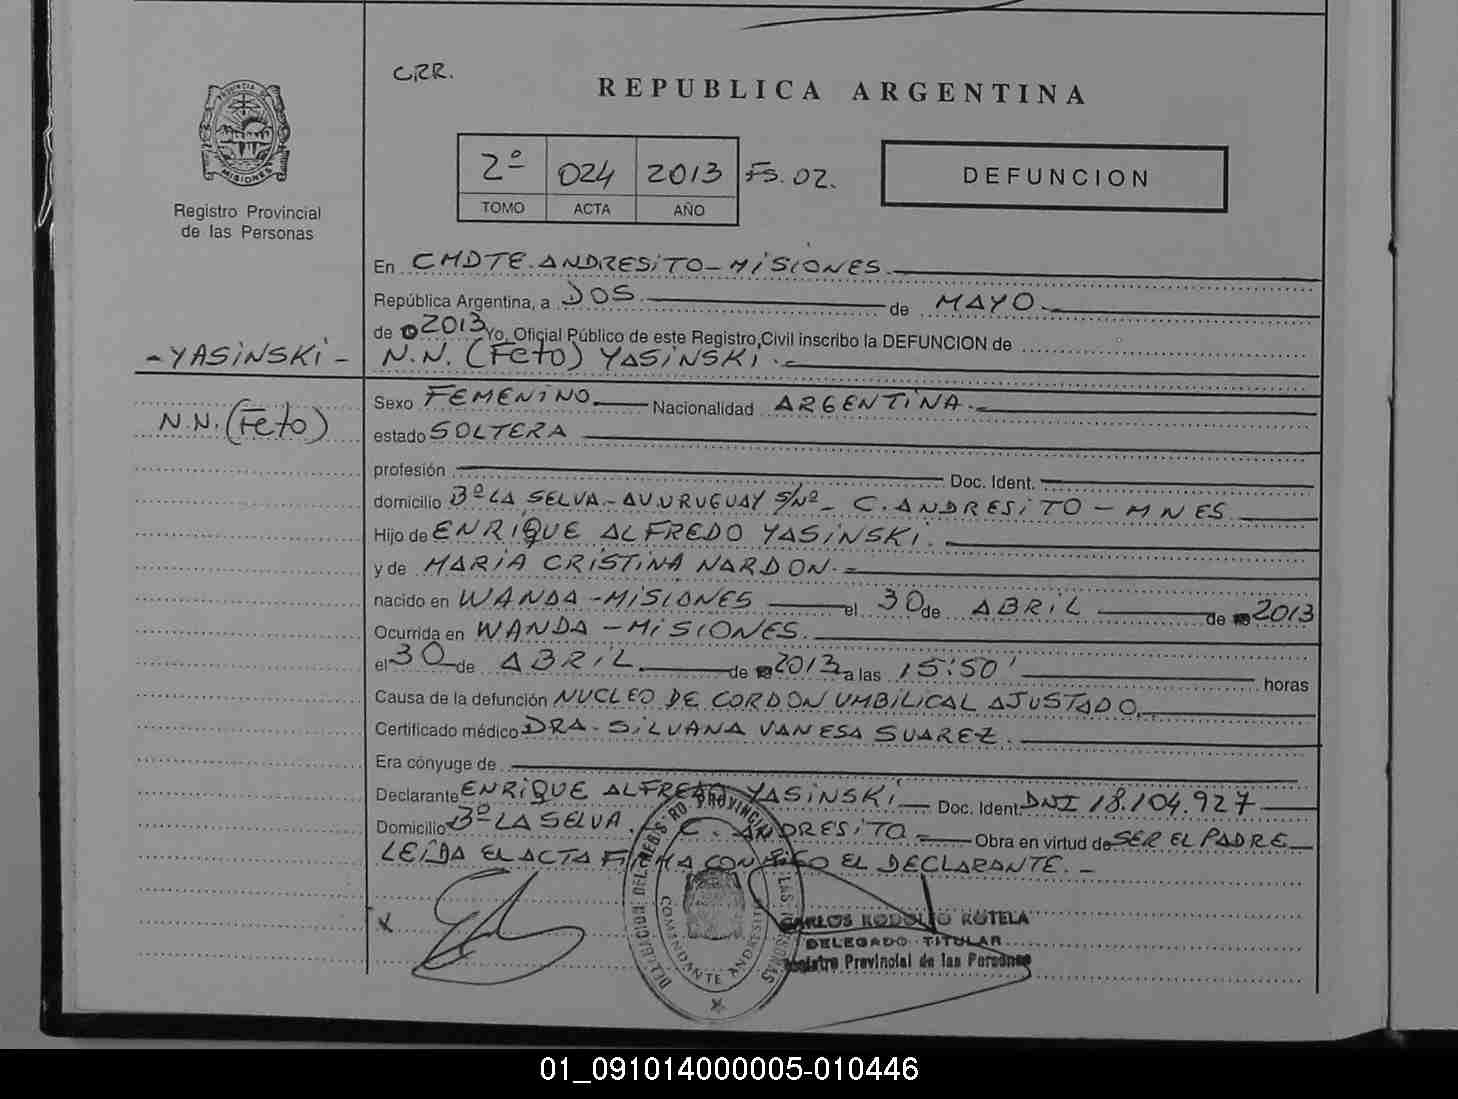 CRR.
REPUBLICA ARGENTINA
PROVINCIA DE
MISIONES
Registro Provincial
de las Personas
2º 024 2013 FS. 02.
TOMO ACTA AÑO
DEFUNCION
En CMDTE. ANDRESiTO - MiSiONES.
República Argentina, a DOS. de MAYO.
de 2013 Yo, Oficial Público de este Registro Civil inscribo la DEFUNCION de
- YASiNSKi -
N.N. (Feto) YASiNSKi.
N.N. (Feto)
Sexo FEMENiNO. Nacionalidad ARGENTiNA.
estado SOLTERA
profesión Doc. Ident.
domicilio Bº LA SELVA.- AV. URUGUAY S/Nº - C. ANDRESiTO - MNES.
Hijo de ENRiQUE ALFREDO YASiNSKi.
y de MARiA CRiSTiNA NARDON.
nacido en WANDA - MiSiONES el 30 de ABRiL de 2013
Ocurrida en WANDA - MiSiONES.
el 30 de ABRiL de 2013 a las 15:50' horas
Causa de la defunción NUCLEO DE CORDON UMBiLiCAL AJUSTADO.
Certificado médico DRA. SiLVANA VANESA SUAREZ.
Era cónyuge de
Declarante ENRiQUE ALFREDO YASiNSKi Doc. Ident. DNI 18.104.927
Domicilio Bº LA SELVA. C. ANDRESiTO Obra en virtud de SER EL PADRE
LEiDA EL ACTA FiRMA CONMiGO EL DECLARANTE. -
X
DELEGACION DEL REGISTRO PROVINCIAL DE LAS PERSONAS
COMANDANTE ANDRESITO
CARLOS RODOLFO ROTELA
DELEGADO TITULAR
Registro Provincial de las Personas
01_091014000005-010446